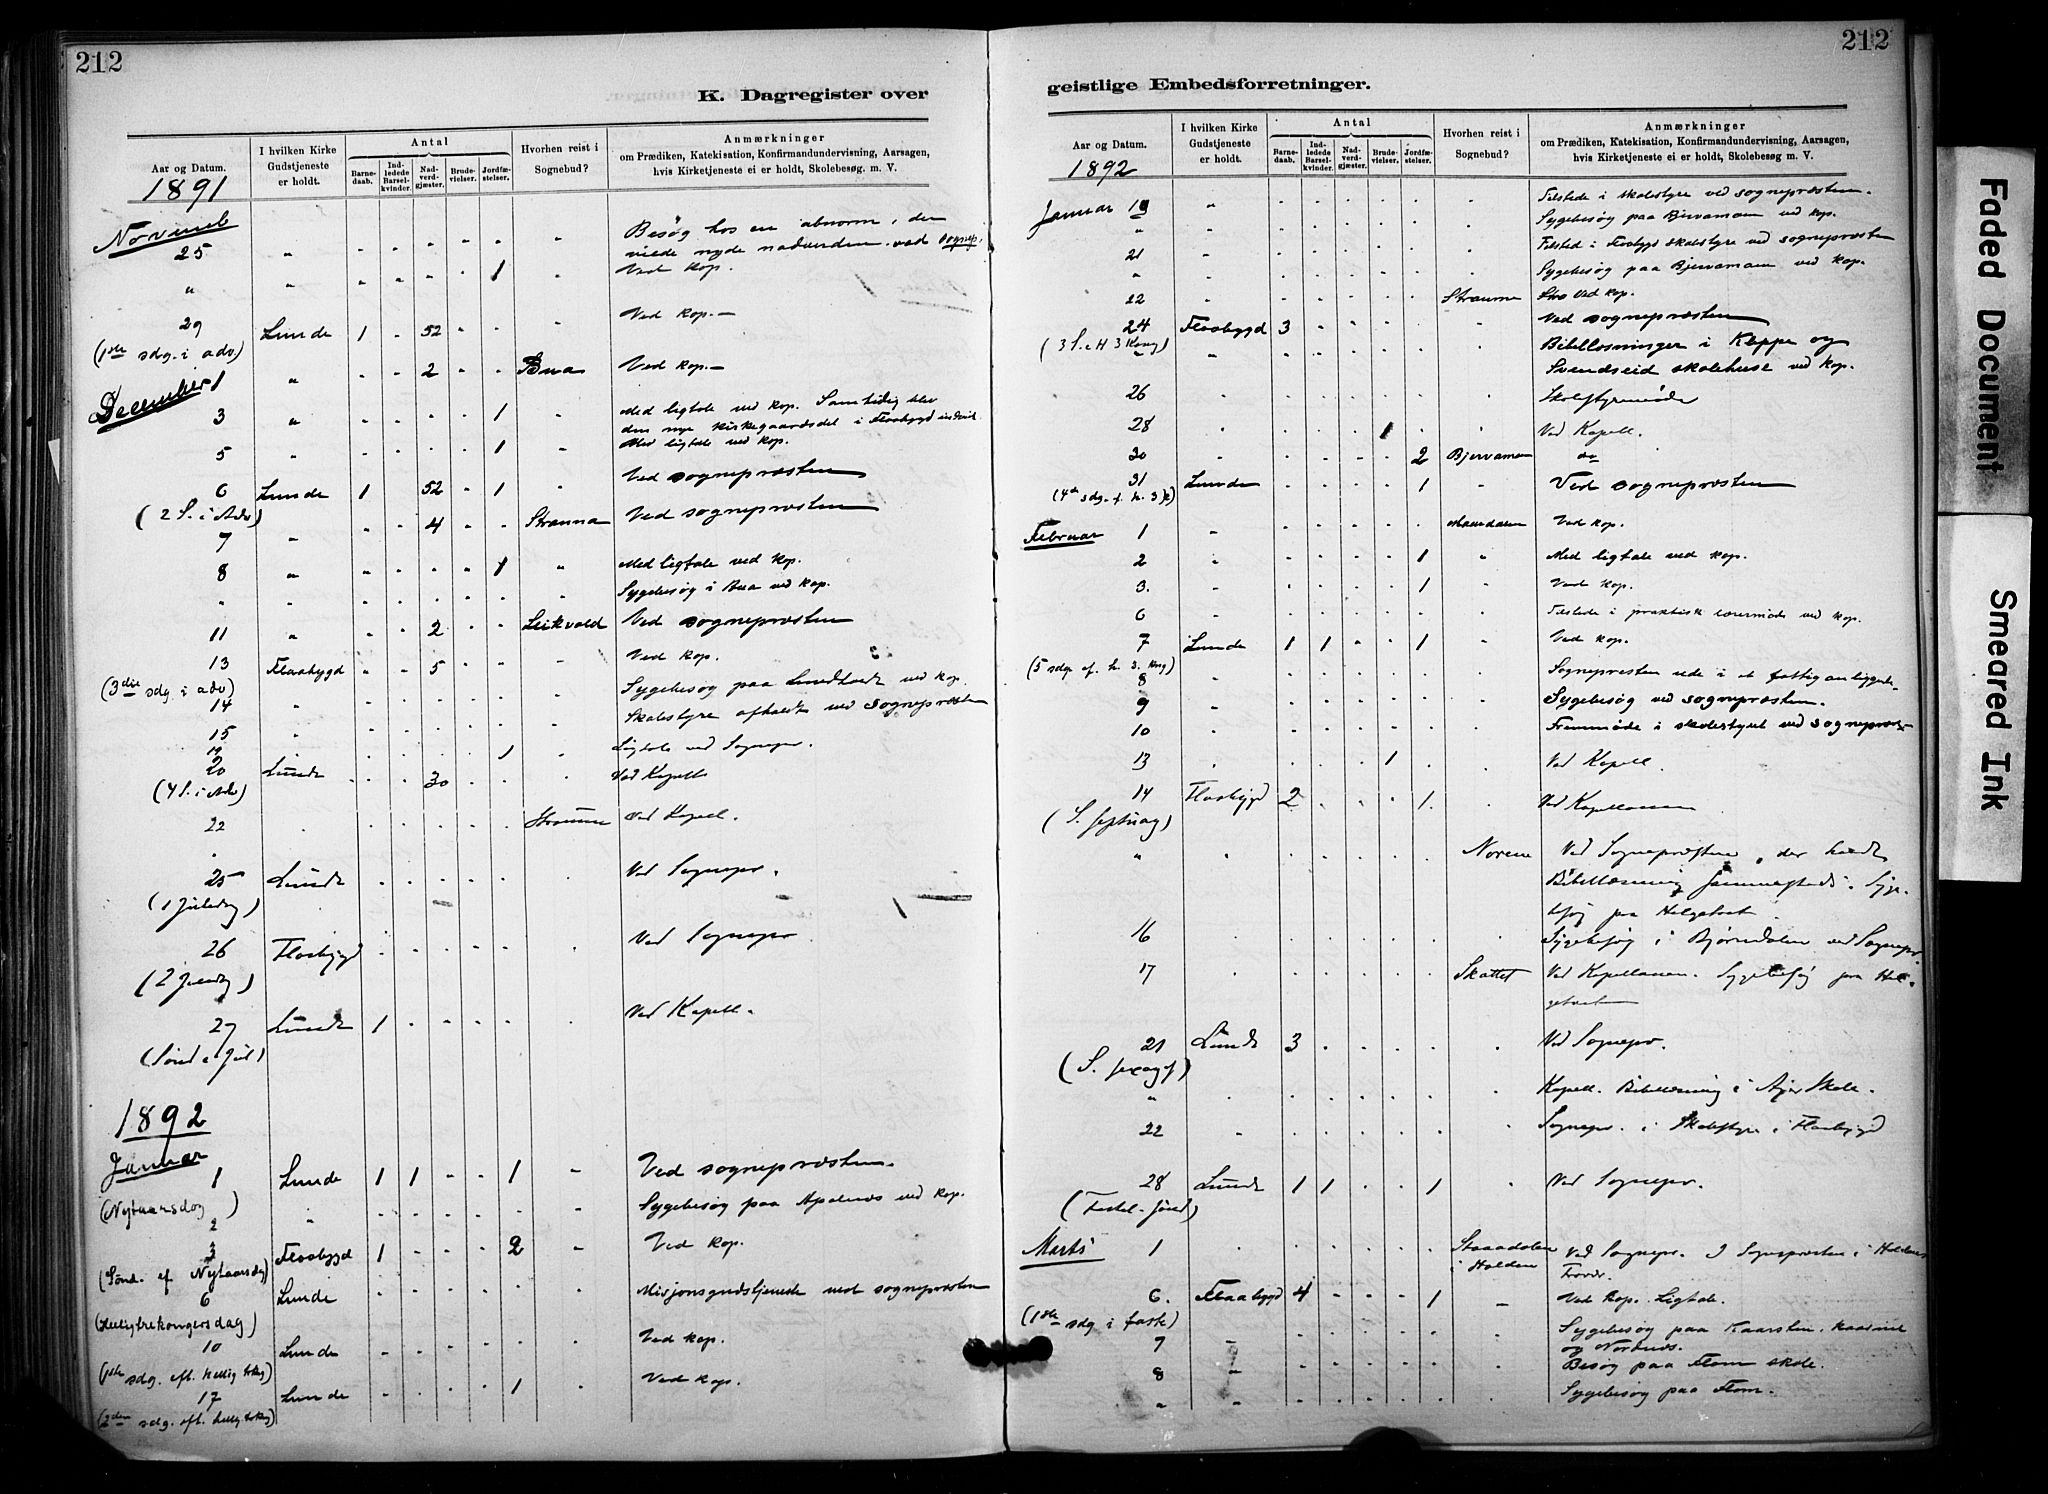 212
K. Dagregister over
Aar og Datum.
I hvilken Kirke Gudstjeneste er holdt.
Antal
Barnedaab.
Indledede Barselkvinder.
Nadverdgjæster.
Brudevielser.
Jordfæstelser.
Hvorhen reist i Sognebud?
Anmærkninger
om Prædiken, Katekisation, Konfirmandundervisning, Aarsagen,
hvis Kirketjeneste ei er holdt, Skolebesøg m. V.
1891
Novemb
25 " Besøg hos en abnorm, der
vilde nyde nadverden. ved Sognep.
" " 1 Ved kop.
29 Lunde 1 52 Ved kop.
(1ste sdg. i adv)
December 1 " 2 Bua Ved kop.
3 " 1 Med ligtale ved kop. Samtidig blev
den nye kirkegaardsdel i Flaabygd indviet
5 " 1 Med ligtale ved kop.
6 Lunde 1 52 1 Ved sognepræsten
(2 S. i Adv)
7 " 4 Strauna Ved sognepræsten
8 " 1 Med ligtale ved kop.
" " Sygebesøg i Bua ved kop.
11 " 2 Leikvold Ved sognepræsten
13 Flaabygd 5 Ved kop.
(3die sdg i adv)
14 " Sygebesøg paa ved kop.
15 " Skolestyre afholdt ved sognepræsten
19 1 Ligtale ved Sognepr.
20 Lunde 30 Ved Kapell
(4 S. i Adv)
22 Straume Ved Kapell.
25 Lunde Ved Sognepr.
(1 Juledag)
26 Flaabygd Ved Sognepr
(2 Juledag)
27 Lunde 1 Ved Kapell.
(Sönd e Jul)
1892
Januar
1 Lunde 1 1 1 Ved sognepræsten.
(Nytaarsdag)
2 " Sygebesøg paa Apalnæs ved kop.
3 Flaabygd 1 2 Ved kop.
(Sönd. ef Nytaarsdag)
6 Lunde Misjonsgudstjeneste ved sognepræsten
(Helligtrekongersdag)
10 Lunde Ved kop.
(1ste sdg. eft. hellig trkg)
17 Lunde 1 Ved kop.
(2den sdg. eft. hellig trkg)
212
geistlige Embedsforretninger.
Aar og Datum.
I hvilken Kirke Gudstjeneste er holdt.
Antal
Barnedaab.
Indledede Barselkvinder.
Nadverdgjæster.
Brudevielser.
Jordfæstelser.
Hvorhen reist i Sognebud?
Anmærkninger
om Prædiken, Katekisation, Konfirmandundervisning, Aarsagen,
hvis Kirketjeneste ei er holdt, Skolebesøg m. V.
1892
Januar 19 " Tilstede i skolestyre ved sognepræsten.
" " Sygebesøg paa Bjervamoen ved kop.
21 Tilsted i Flaabygd skolestyre ved sognepræsten
" Sygebesøg paa Bjervamoen ved kop.
22 " Straume Ved kop.
24 Flaabygd 3 Ved sognepræsten
(3 S. e H 3 Kong)
" " Bibellæsninger i Kleppe og
Svendseid skolehuse ved kop.
26 Skolestyremøde
28 1 Ved Kapell.
30 2 Bjervamoen do
31 Lunde 1 Ved sognepræsten
(4de sdg. f. h. 3 k)
Februar 1 " Ved kop.
2 " 1 Med ligtale ved kop.
3. " 1 Ved kop.
6 " Tilstede i praktisk lærermøde ved kop.
7 Lunde 1 1 1 Ved kop.
(5 sdg ef. h. 3. kng)
8 " Sognepresten ude i et fattiganliggende
9 " Sygebesøg ved sognepræsten.
10 Fremmøde i skolestyret ved sognepræst
13 1 Ved Kapell.
14 Flaabygd 2 1. Ved Kapellanen
(S. septuag)
" Norene Ved Sognepræsten, der holdt
Bibellæsning sammesteds. Syge-
besøg paa Helgetvet.
16 Sygebesøg i Bjørndalen ved Sognepr.
17 Skottet Ved Kapellanen. Sygebesøg paa Hel-
getveten
21 Lunde 3 Ved Sognepr.
(S. sexages)
" Kapell. Bibellæsning i Skole.
22 Sognepr. i Skolestyre i Flaabygd
28 Lunde 1 1 1 Ved Sognepr.
(Fastel-sönd)
Marts 1 i Holden Ved Sognepr. I Sognepræsten i Holdens
Fravær.
6. Flaabygd 4 1 Ved kop. Ligtale.
(1ste sdg i faste)
7 " Sygebesøg paa
og Nordnæs.
8 " Besøg paa Flom skole.
" " Sygebesøg paa Flom.
Faded Document
Smeared Ink